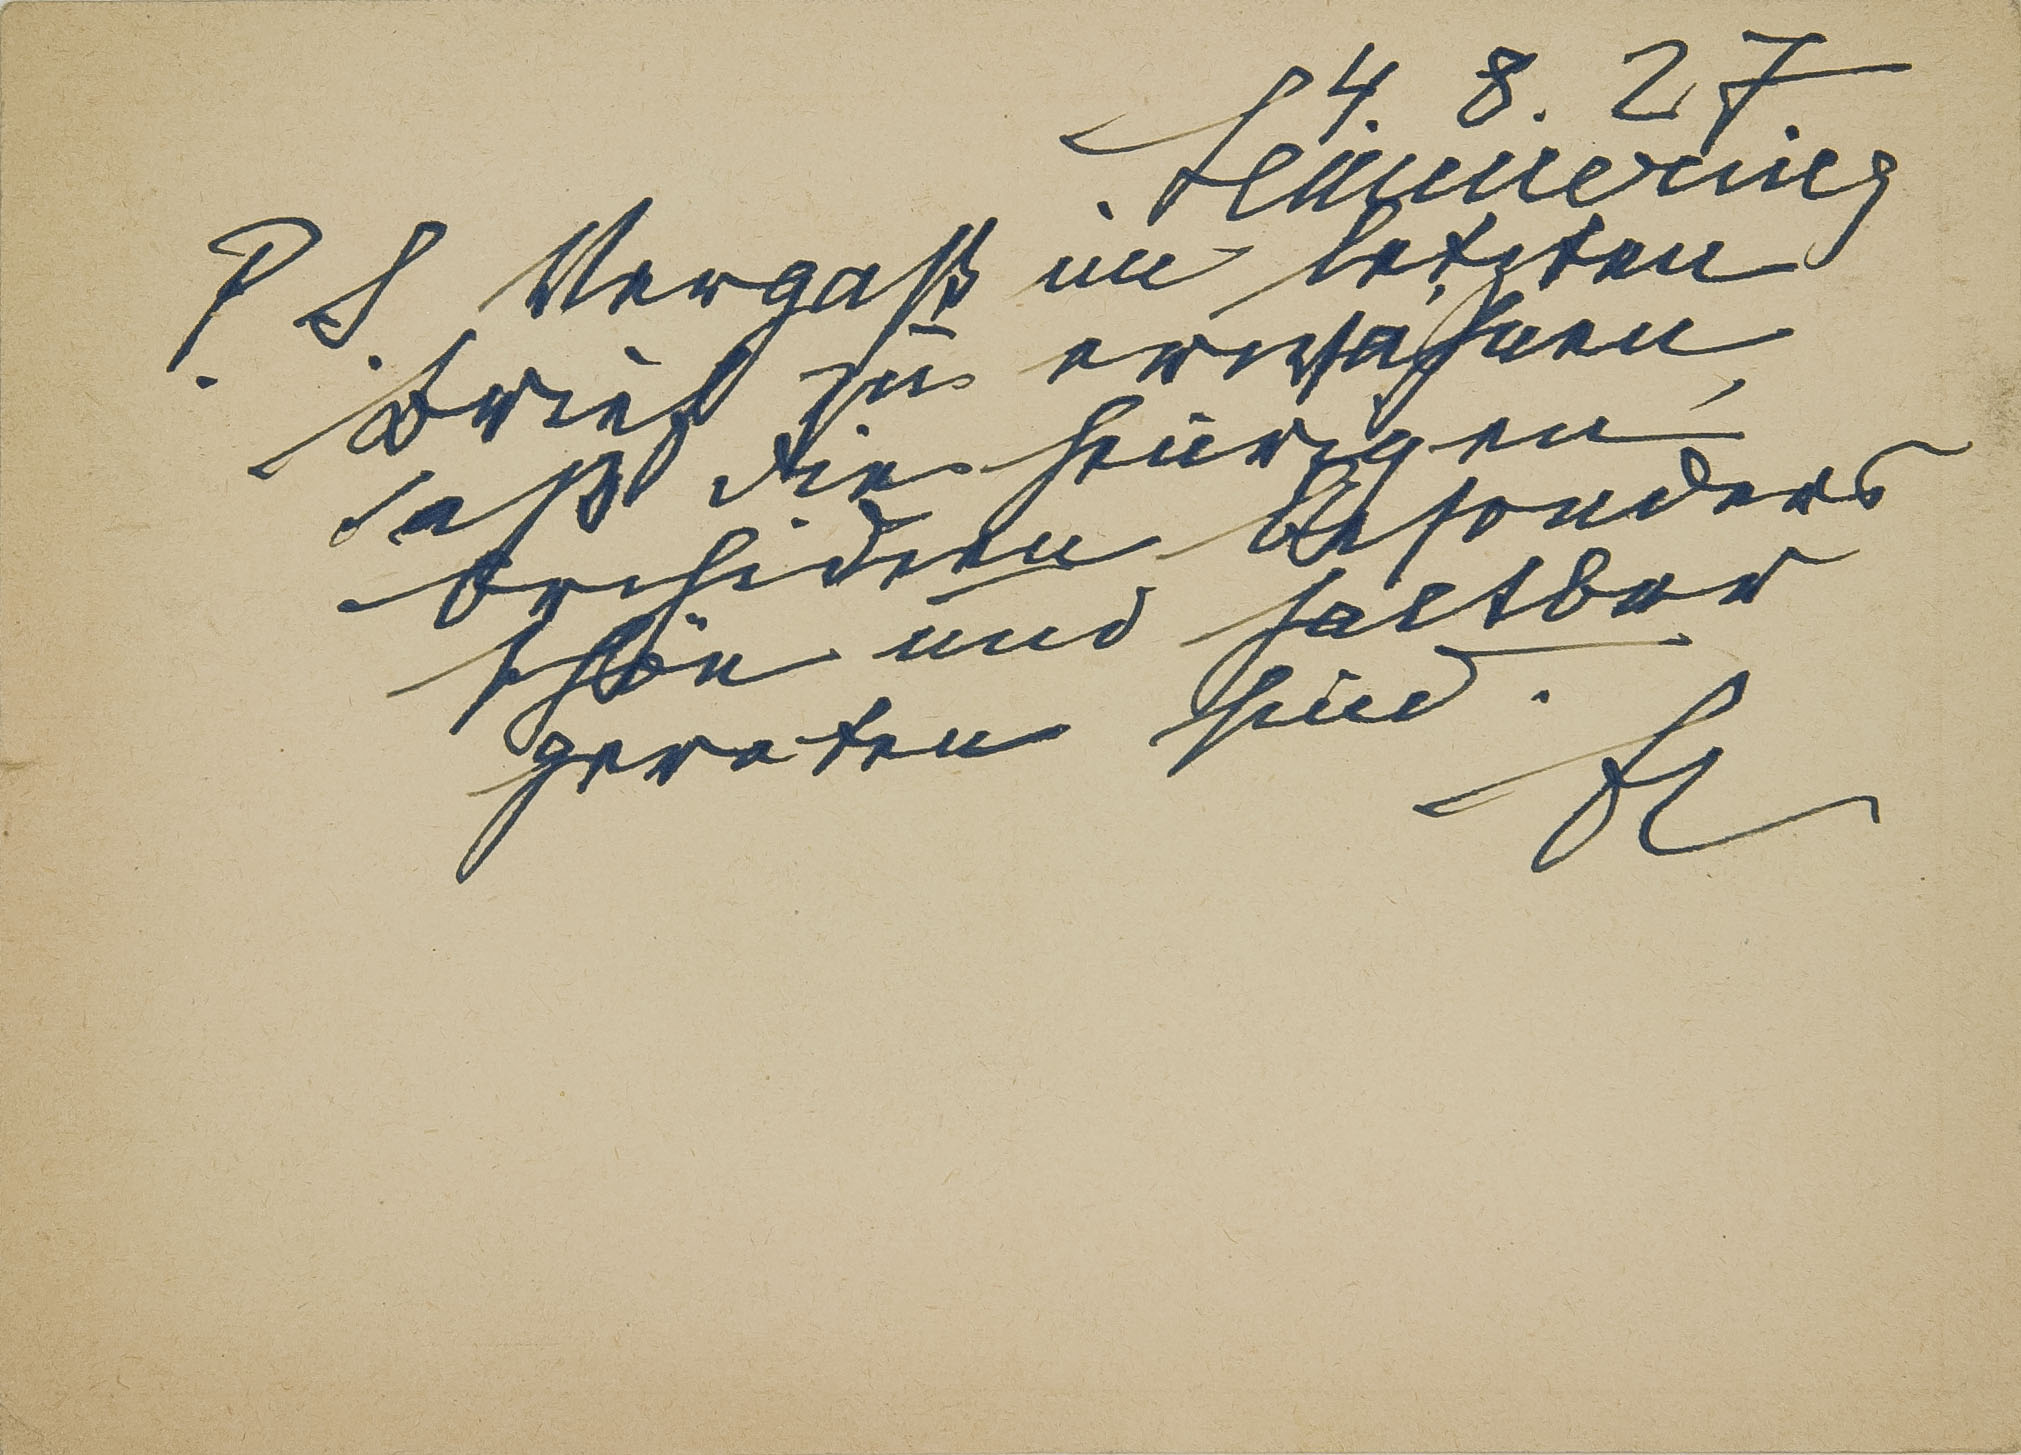 4. 8. 27
Semmering
P. S. Vergaß im letzten
Brief zu erwähnen,
daß die heurigen
Orchideen besonders
schön und haltbar
geraten sind.